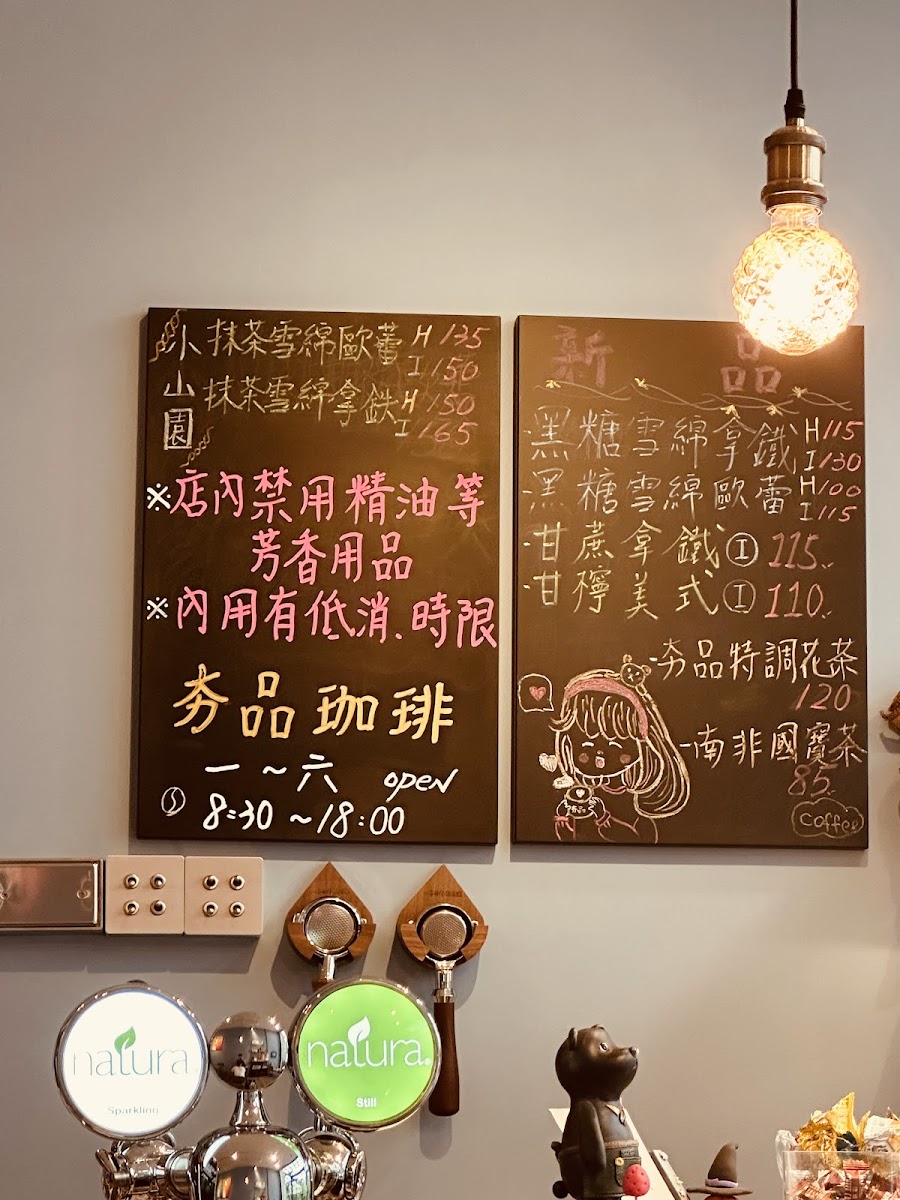 小山園
抹茶雪綿歐蕾 H 135
I 150
抹茶雪綿拿鉄 H 150
I 165
※店內禁用精油等
芳香用品
※內用有低消、時限
夯品珈琲
一~六 open
8:30~18:00
新品
·黑糖雪綿拿鐵 H 115
I 130
·黑糖雪綿歐蕾 H 100
I 115
·甘蔗拿鐵 I 115.
·甘檸美式 I 110.
·夯品特調花茶
120
·南非國寶茶
85.
Coffee
natura
Sparkling
natura
Still